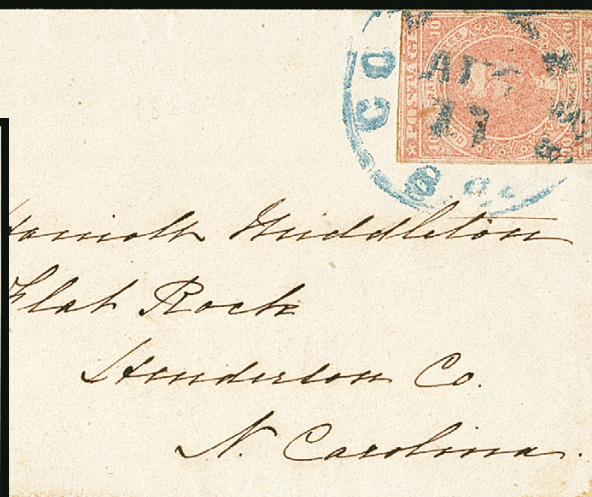 POSTAGE
CO
17
Middleton
Flat Rock
Henderson Co.
N. Carolina.